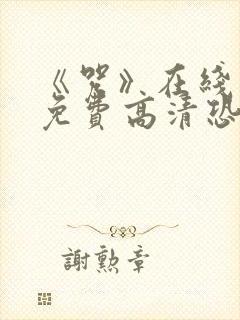 《咒》在线
免费高清恐
謝勲章